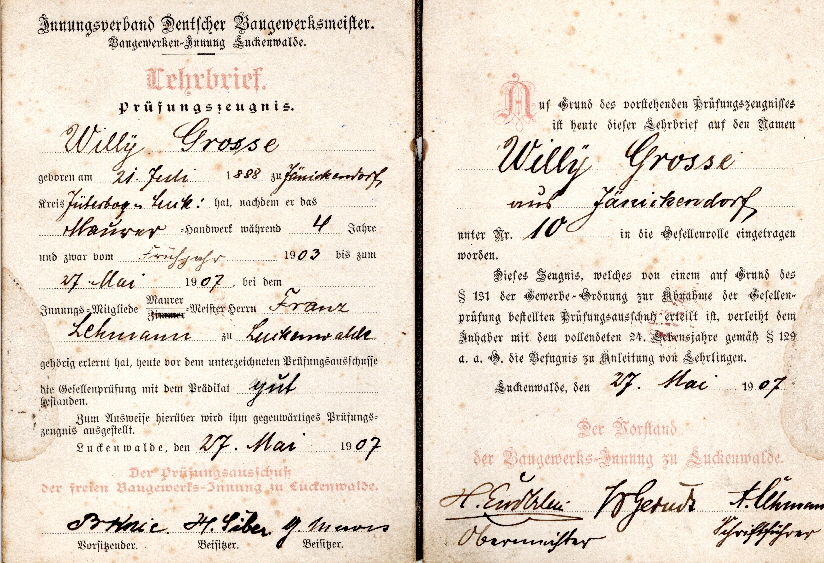 Innungsverband Deutscher Baugewerksmeister.
Baugewerken-Innung Luckenwalde.
Lehrbrief.
Prüfungszeugnis.
Willy Grosse
geboren am 21. Juli 1888 zu Jänickendorf
Kreis Jüterbog-Luck: hat, nachdem er das
Maurer-Handwerk während 4 Jahre
und zwar vom Frühjahr 1903 bis zum
27. Mai 1907 bei dem
Innungs-Mitgliede Maurer Zimmer-Meister Herrn Franz
Lehmann zu Luckenwalde
gehörig erlernt hat, heute vor dem unterzeichneten Prüfungsausschusse
die Gesellenprüfung mit dem Prädikat gut
bestanden.
Zum Ausweise hierüber wird ihm gegenwärtiges Prüfungs-
zeugnis ausgestellt.
Luckenwalde, den 27. Mai 1907
Der Prüfungsausschuß
der freien Baugewerks-Innung in Luckenwalde.
H. Siber
Vorsitzender. Beisitzer. Beisitzer.
Auf Grund des vorstehenden Prüfungszeugnisses
ist heute dieser Lehrbrief auf den Namen
Willy Grosse
aus Jänickendorf
unter Nr. 10 in die Gesellenrolle eingetragen
worden.
Dieses Zeugnis, welches von einem auf Grund des
§ 131 der Gewerbe-Ordnung zur Abnahme der Gesellen-
prüfung bestellten Prüfungsausschuß erteilt ist, verleiht dem
Inhaber mit dem vollendeten 24. Lebensjahre gemäß § 129
a. a. O. die Befugnis zu Anleitung von Lehrlingen.
Luckenwalde, den 27. Mai 1907.
Der Vorstand
der Baugewerks-Innung zu Luckenwalde.
A. Lehmann
Obermeister Schriftführer